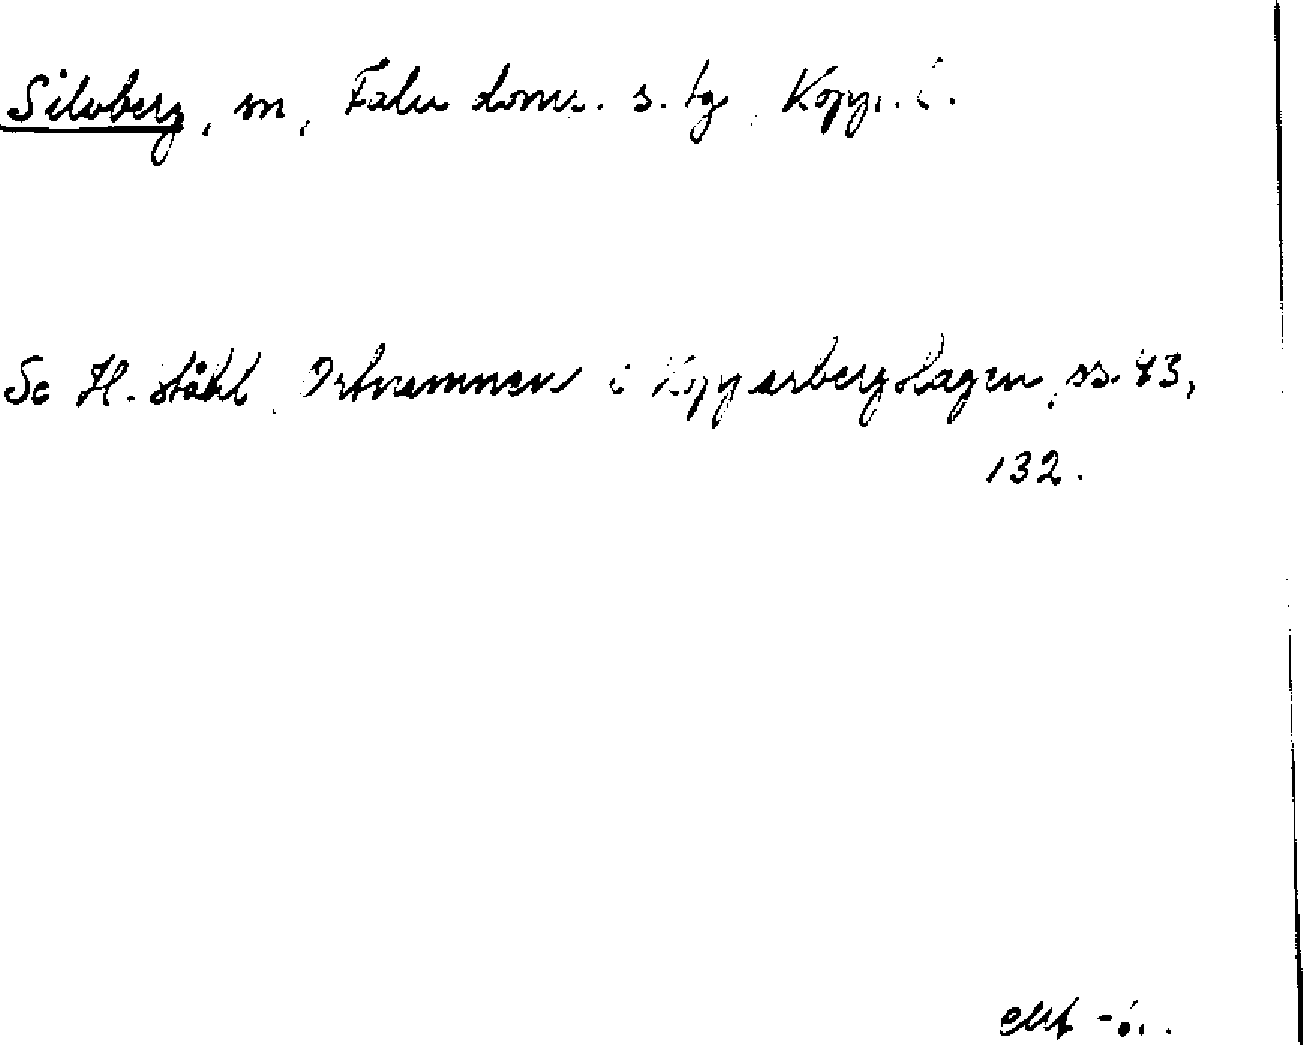 Silvberg, m, Falu doms. s. tg, Kopp. l.
Se H. Ståhl, Ortnamnen i Kopparbergslagen, ss. 83,
132.